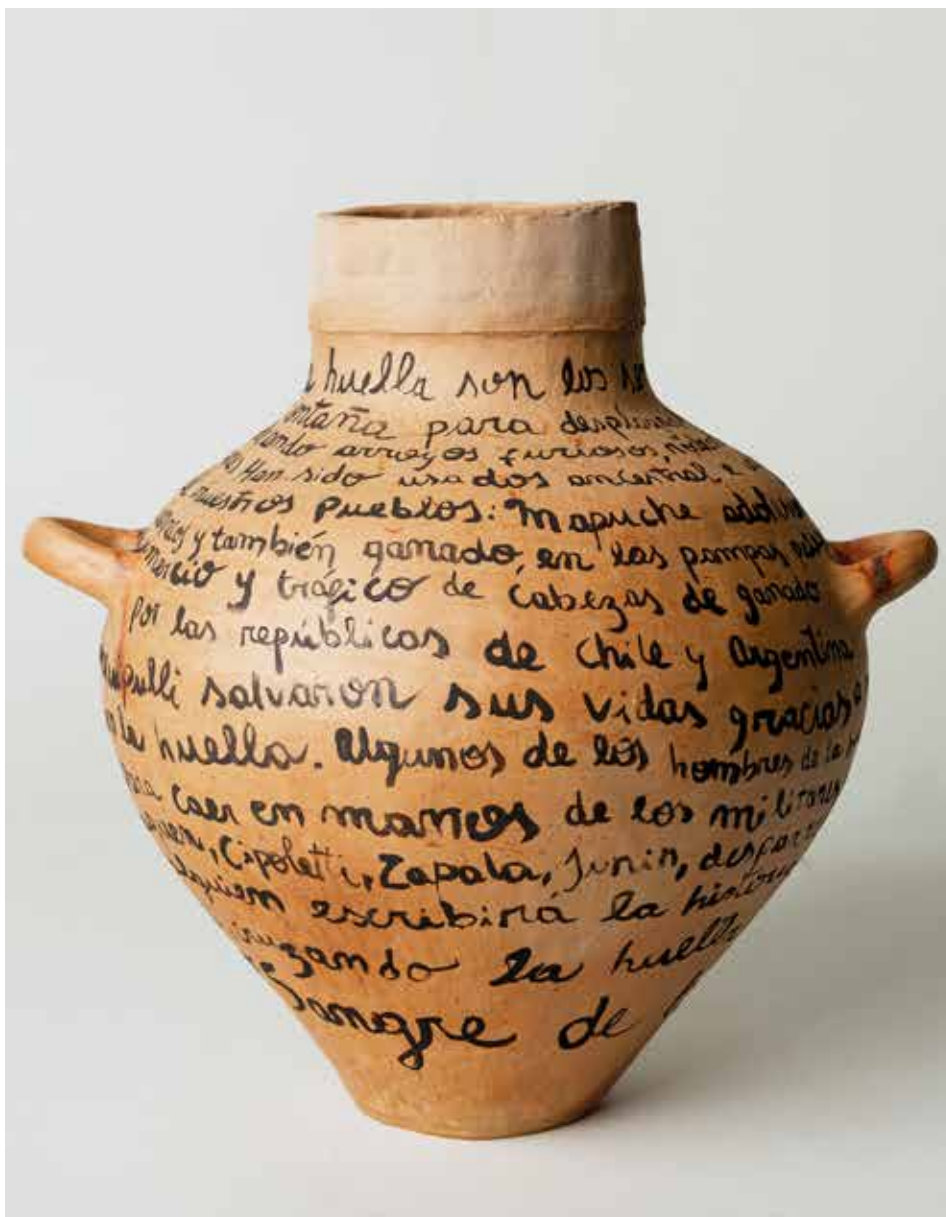 huella son los
para
arroyos furiosos,
Han sido usados ancestral
nuestros Pueblos: Mapuche
y también ganado, en las pampas
y tráfico de cabezas de ganado
Por las repúblicas de Chile y Argentina
salvaron sus vidas gracias
la huella. Algunos de los hombres de la
caer en manos de los militares
Cipoletti, Zapala, Junin,
escribirá la
la huella
Sangre de